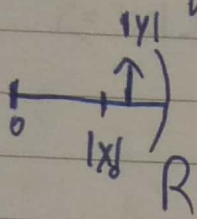 |y|
0
|x|
R